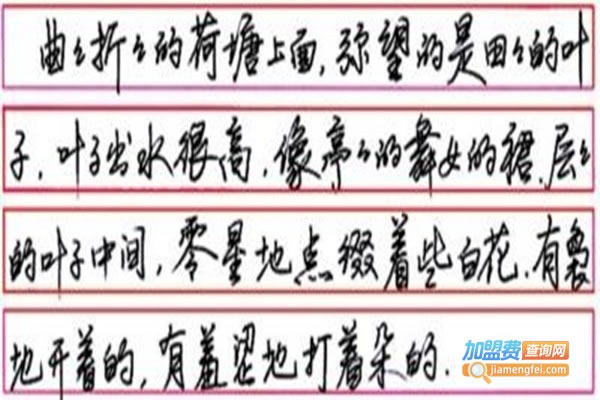 曲々折々的荷塘上面,弥望的是田々的叶
子,叶子出水很高,像亭々的舞女的裙.层々
的叶子中间,零星地点缀着些白花,有袅
地开着的,有羞涩地打着朵的.
加盟费查询网
jiamengfei.com